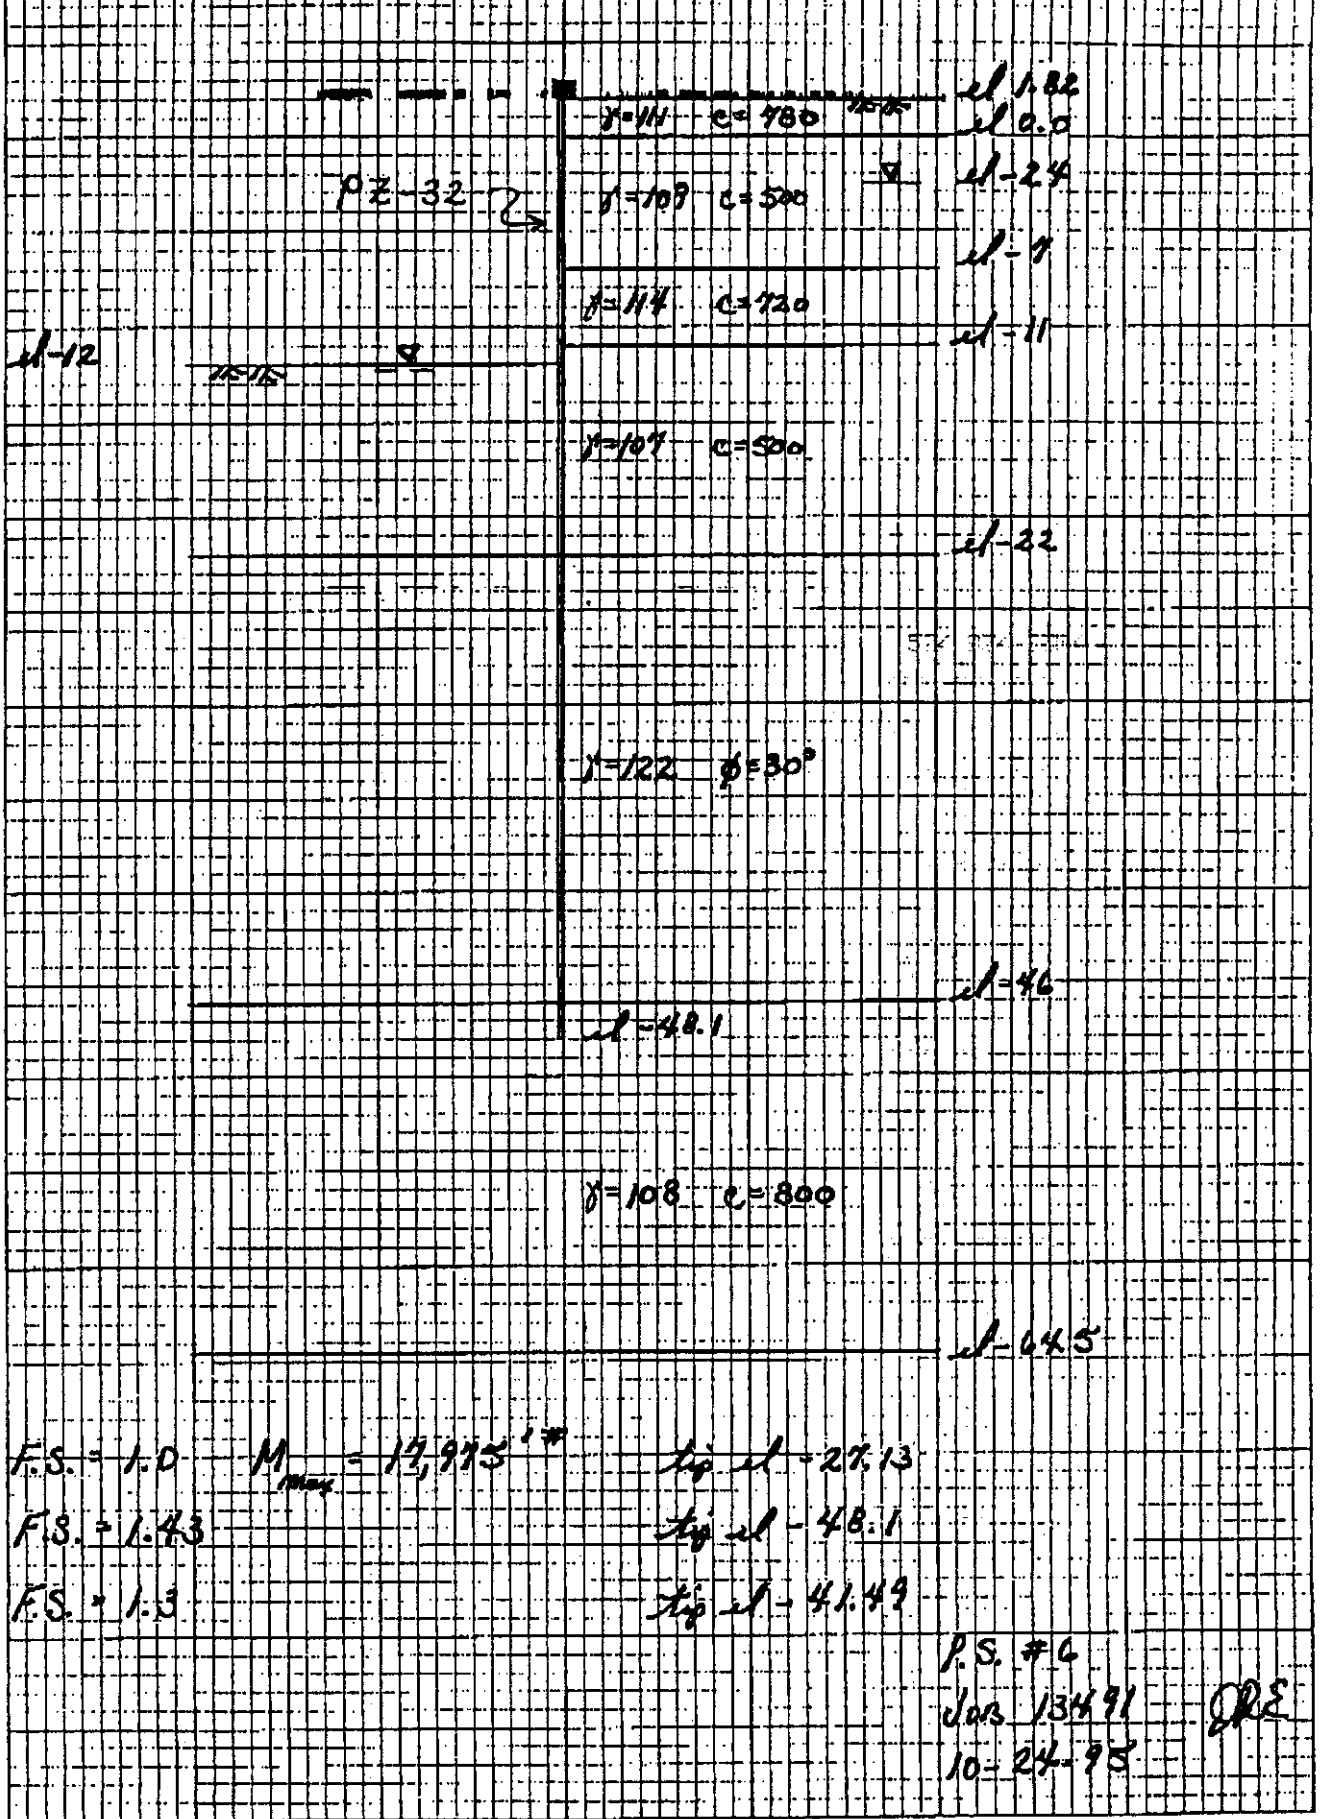 el 1.82
γ=111 c=780
el 0.0
el-2.4
PZ-32
γ=109 c=500
el-7
γ=114 c=720
el-11
el-12
γ=107 c=500
el-22
γ=122 ϕ=30°
el-46
el-48.1
γ=108 c=800
el-64.5
F.S. = 1.0 Mmax = 17,975'# tip el -27.13
F.S. = 1.43 tip el -48.1
F.S. = 1.3 tip el -41.49
P.S. #6
JOB 13491
10-24-95